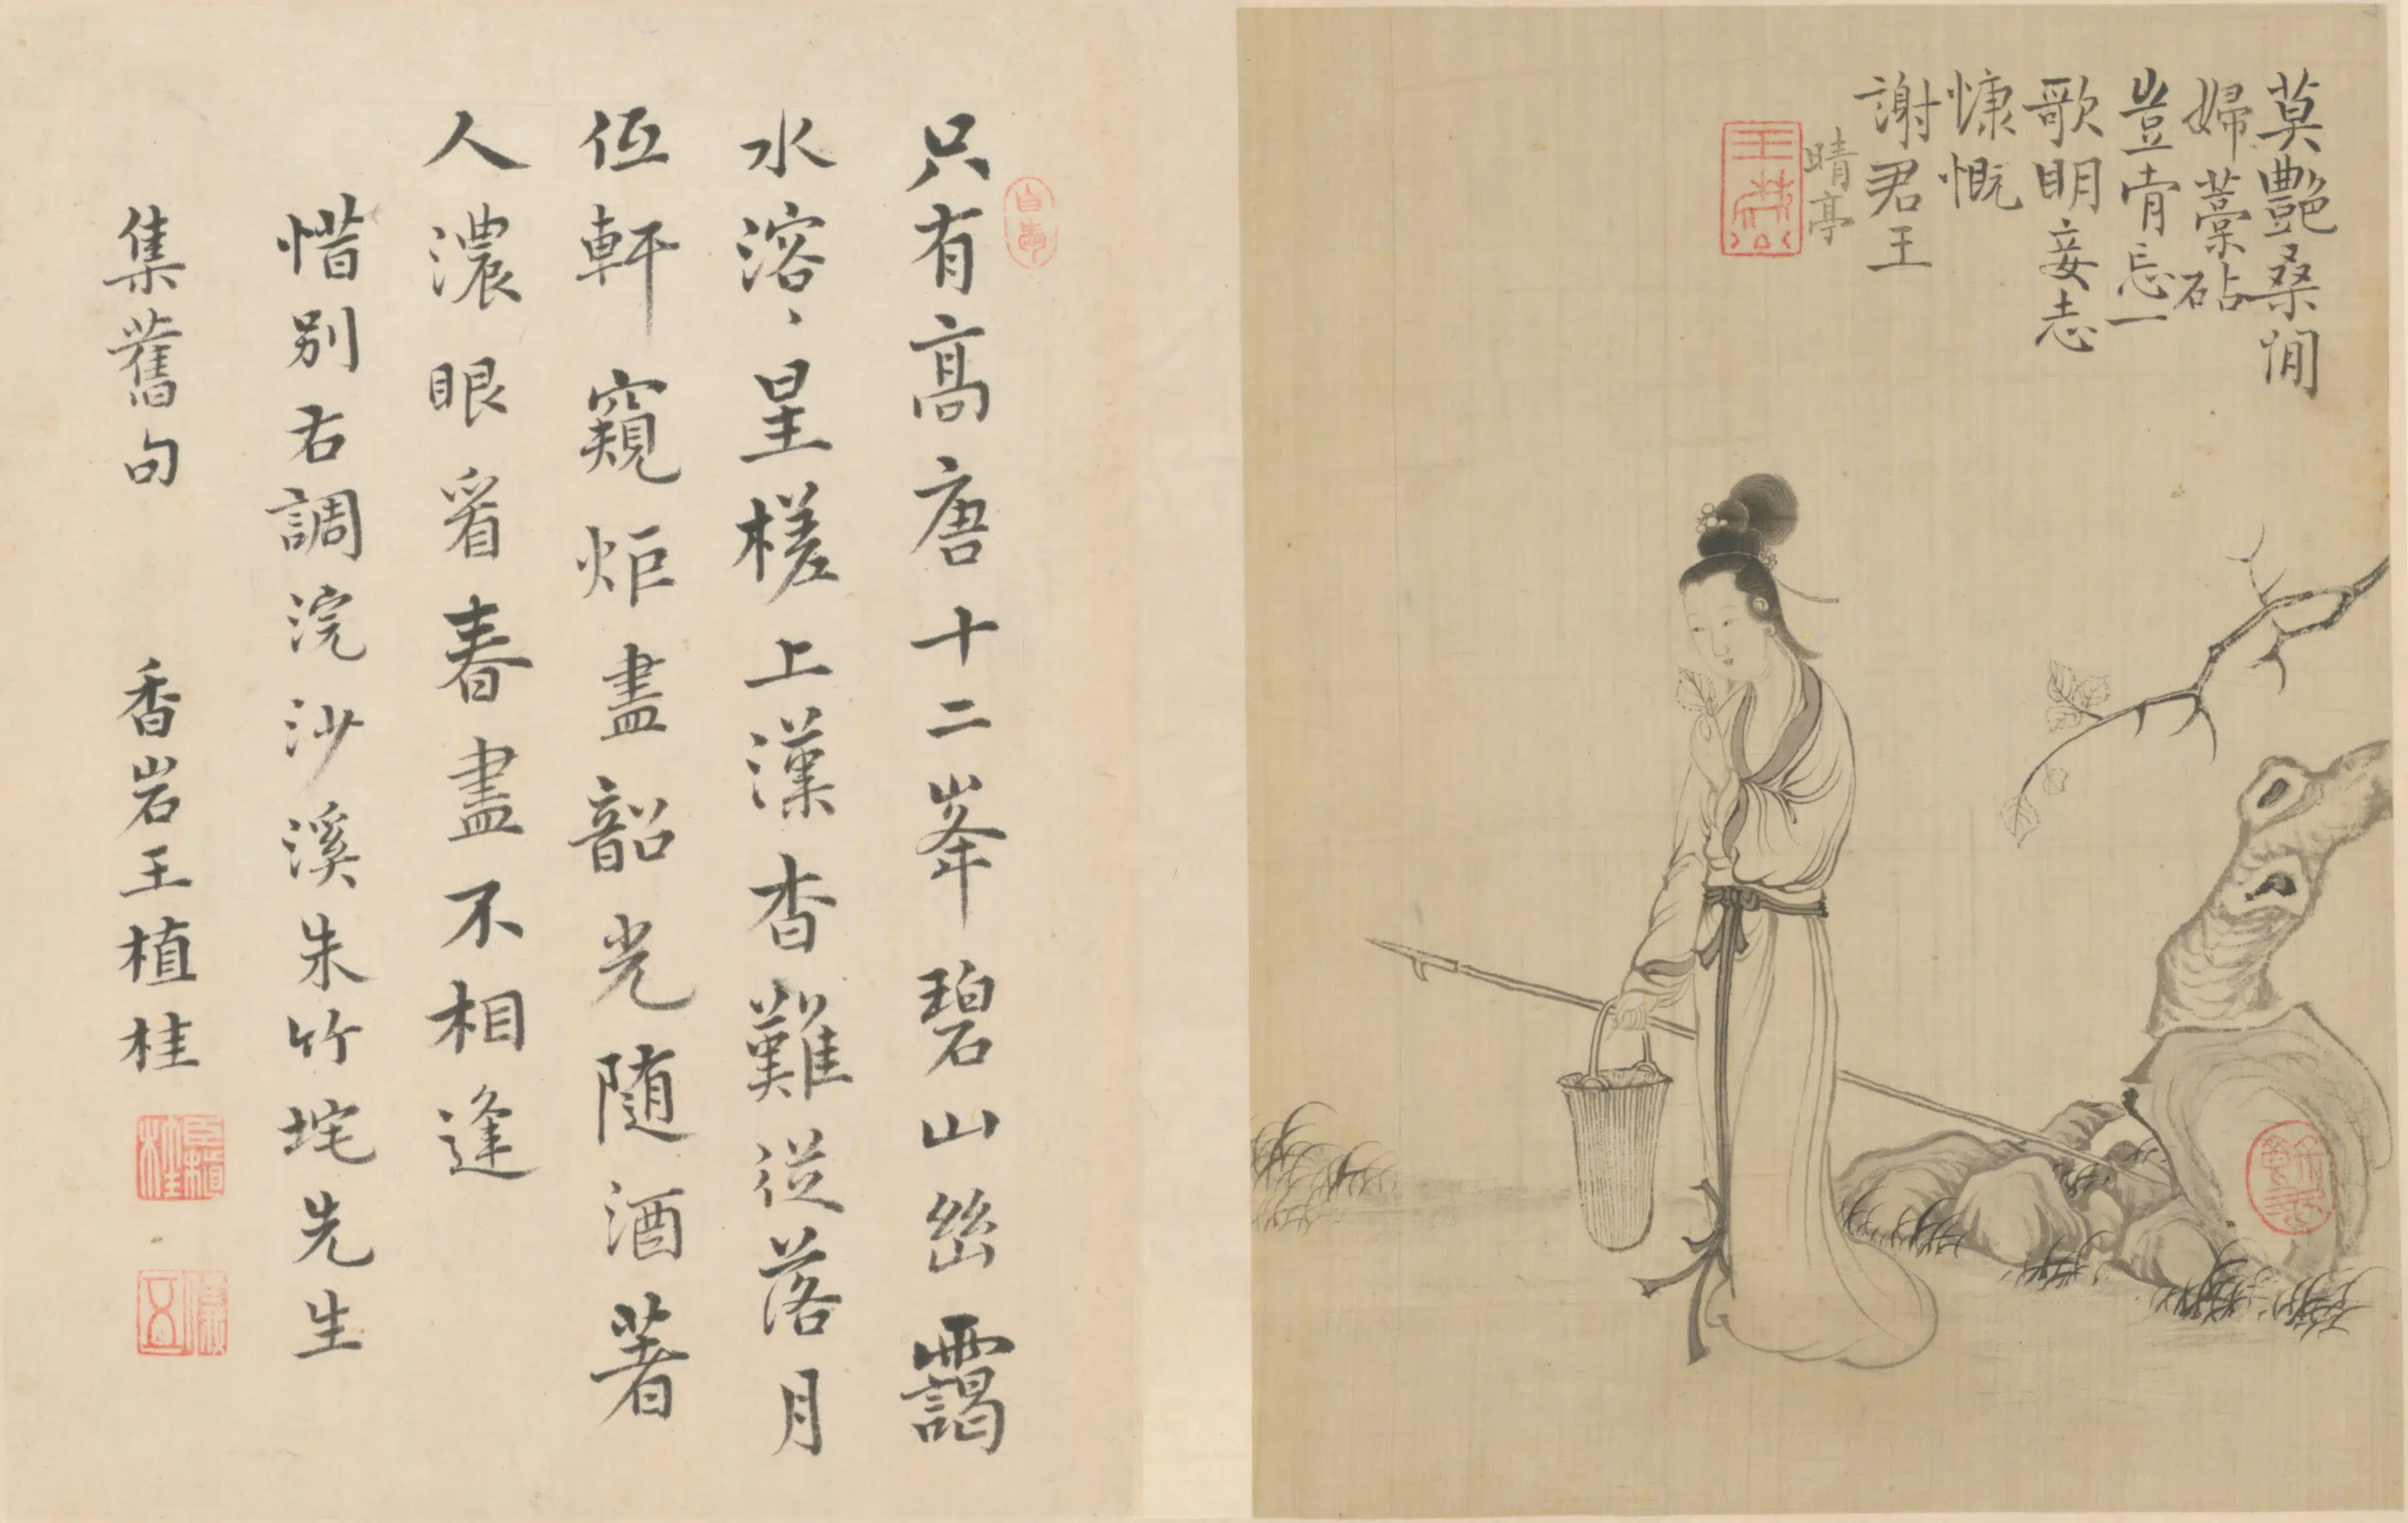 莫艷桑間
婦藁砧
豈肯忘一
歌明妾志
慷慨
謝君王
晴亭
只有高唐十二峯碧山幽靄
水溶、星槎上漢杳難從落月
低軒窺炬盡韶光随酒著
人濃眼看春盡不相逢
惜別右調浣沙溪朱竹垞先生
集舊句 香岩王植桂
臣植桂